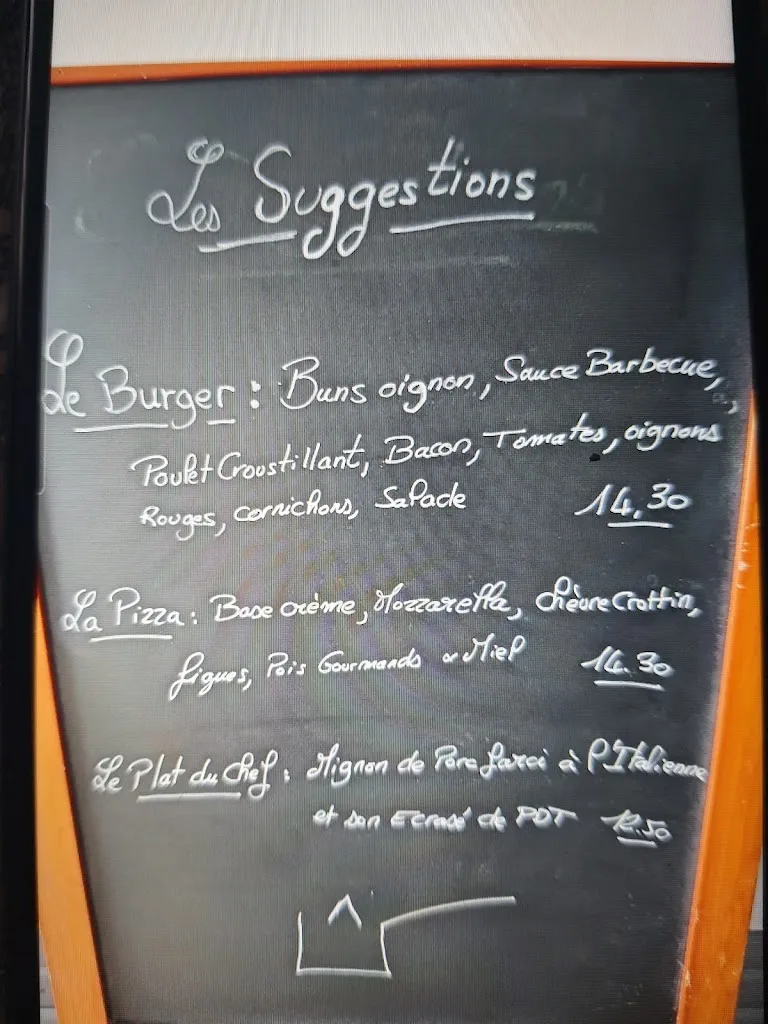 Les Suggestions
Le Burger : Buns oignon, Sauce Barbecue,
Poulet Croustillant, Bacon, Tomates, oignons
Rouges, cornichons, Salade 14,30
La Pizza : Base crème, Mozzarella, chèvre Crottin,
figues, Pois Gourmands & Miel 14.30
Le Plat du chef : Mignon de Porc farci à l'Italienne
et son Ecrasé de PDT 12.50